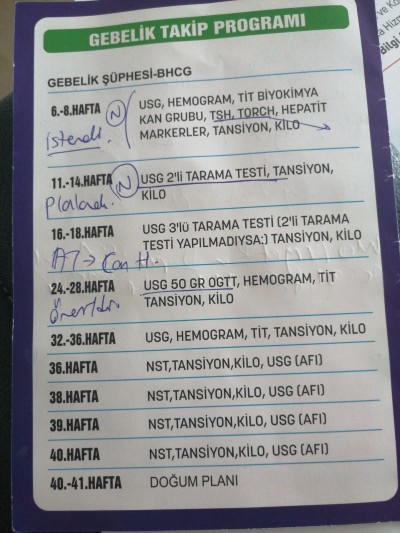 GEBELİK TAKİP PROGRAMI
GEBELİK ŞÜPHESİ-BHCG
6.-8.HAFTA N USG, HEMOGRAM, TİT BİYOKİMYA
KAN GRUBU, TSH, TORCH, HEPATİT
istendi. MARKERLER, TANSİYON, KİLO
11.-14.HAFTA N USG 2'li TARAMA TESTİ, TANSİYON,
KİLO
16.-18.HAFTA USG 3'lü TARAMA TESTİ (2'li TARAMA
TESTİ YAPILMADIYSA:) TANSİYON, KİLO
24.-28.HAFTA USG 50 GR OGTT, HEMOGRAM, TİT
Önerildi. TANSİYON, KİLO
32.-36.HAFTA USG, HEMOGRAM, TİT, TANSİYON, KİLO
36.HAFTA NST,TANSİYON,KİLO, USG (AFI)
38.HAFTA NST,TANSİYON,KİLO, USG (AFI)
39.HAFTA NST,TANSİYON,KİLO, USG (AFI)
40.HAFTA NST,TANSİYON,KİLO, USG (AFI)
40.-41.HAFTA DOĞUM PLANI